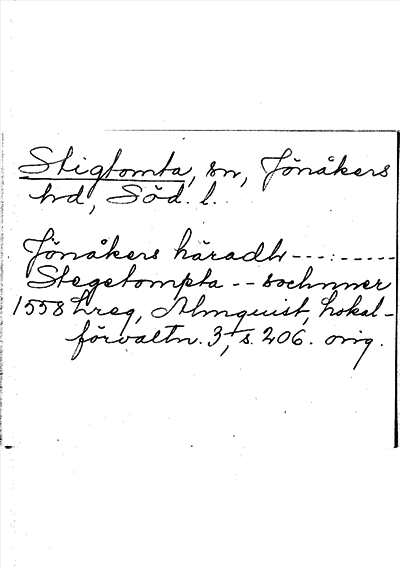 Stigtomta, sn, Jönåkers
hd, Söd. l.
Jönåkers häradh---:-----
Stegetompta -- sochnner
1558 Lreg, Almquist, Lokal-
förvaltn. 3, s. 206. orig.